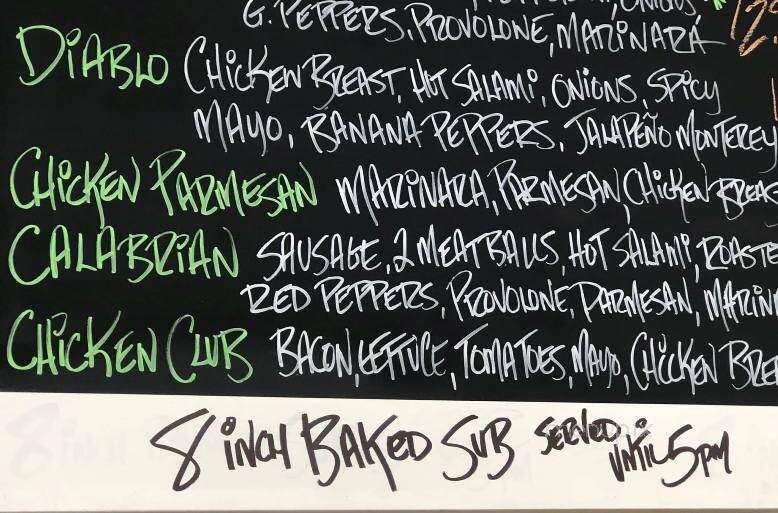 G. PEPPERS, PROVOLONE, MARINARA
DIABLO CHICKEN BREAST, HOT SALAMI, ONIONS, SPICY
MAYO, BANANA PEPPERS, JALAPEÑO MONTEREY
CHICKEN PARMESAN MARINARA, PARMESAN, CHICKEN BREAS
CALABRIAN SAUSAGE, 2 MEATBALLS, HOT SALAMI, ROASTE
RED PEPPERS, PROVOLONE, PARMESAN, MARIN
CHICKEN CLUB BACON, LETTUCE, TOMATOES, MAYO, CHICKEN BRE
8 INCH BAKED SUB SERVED UNTIL 5PM